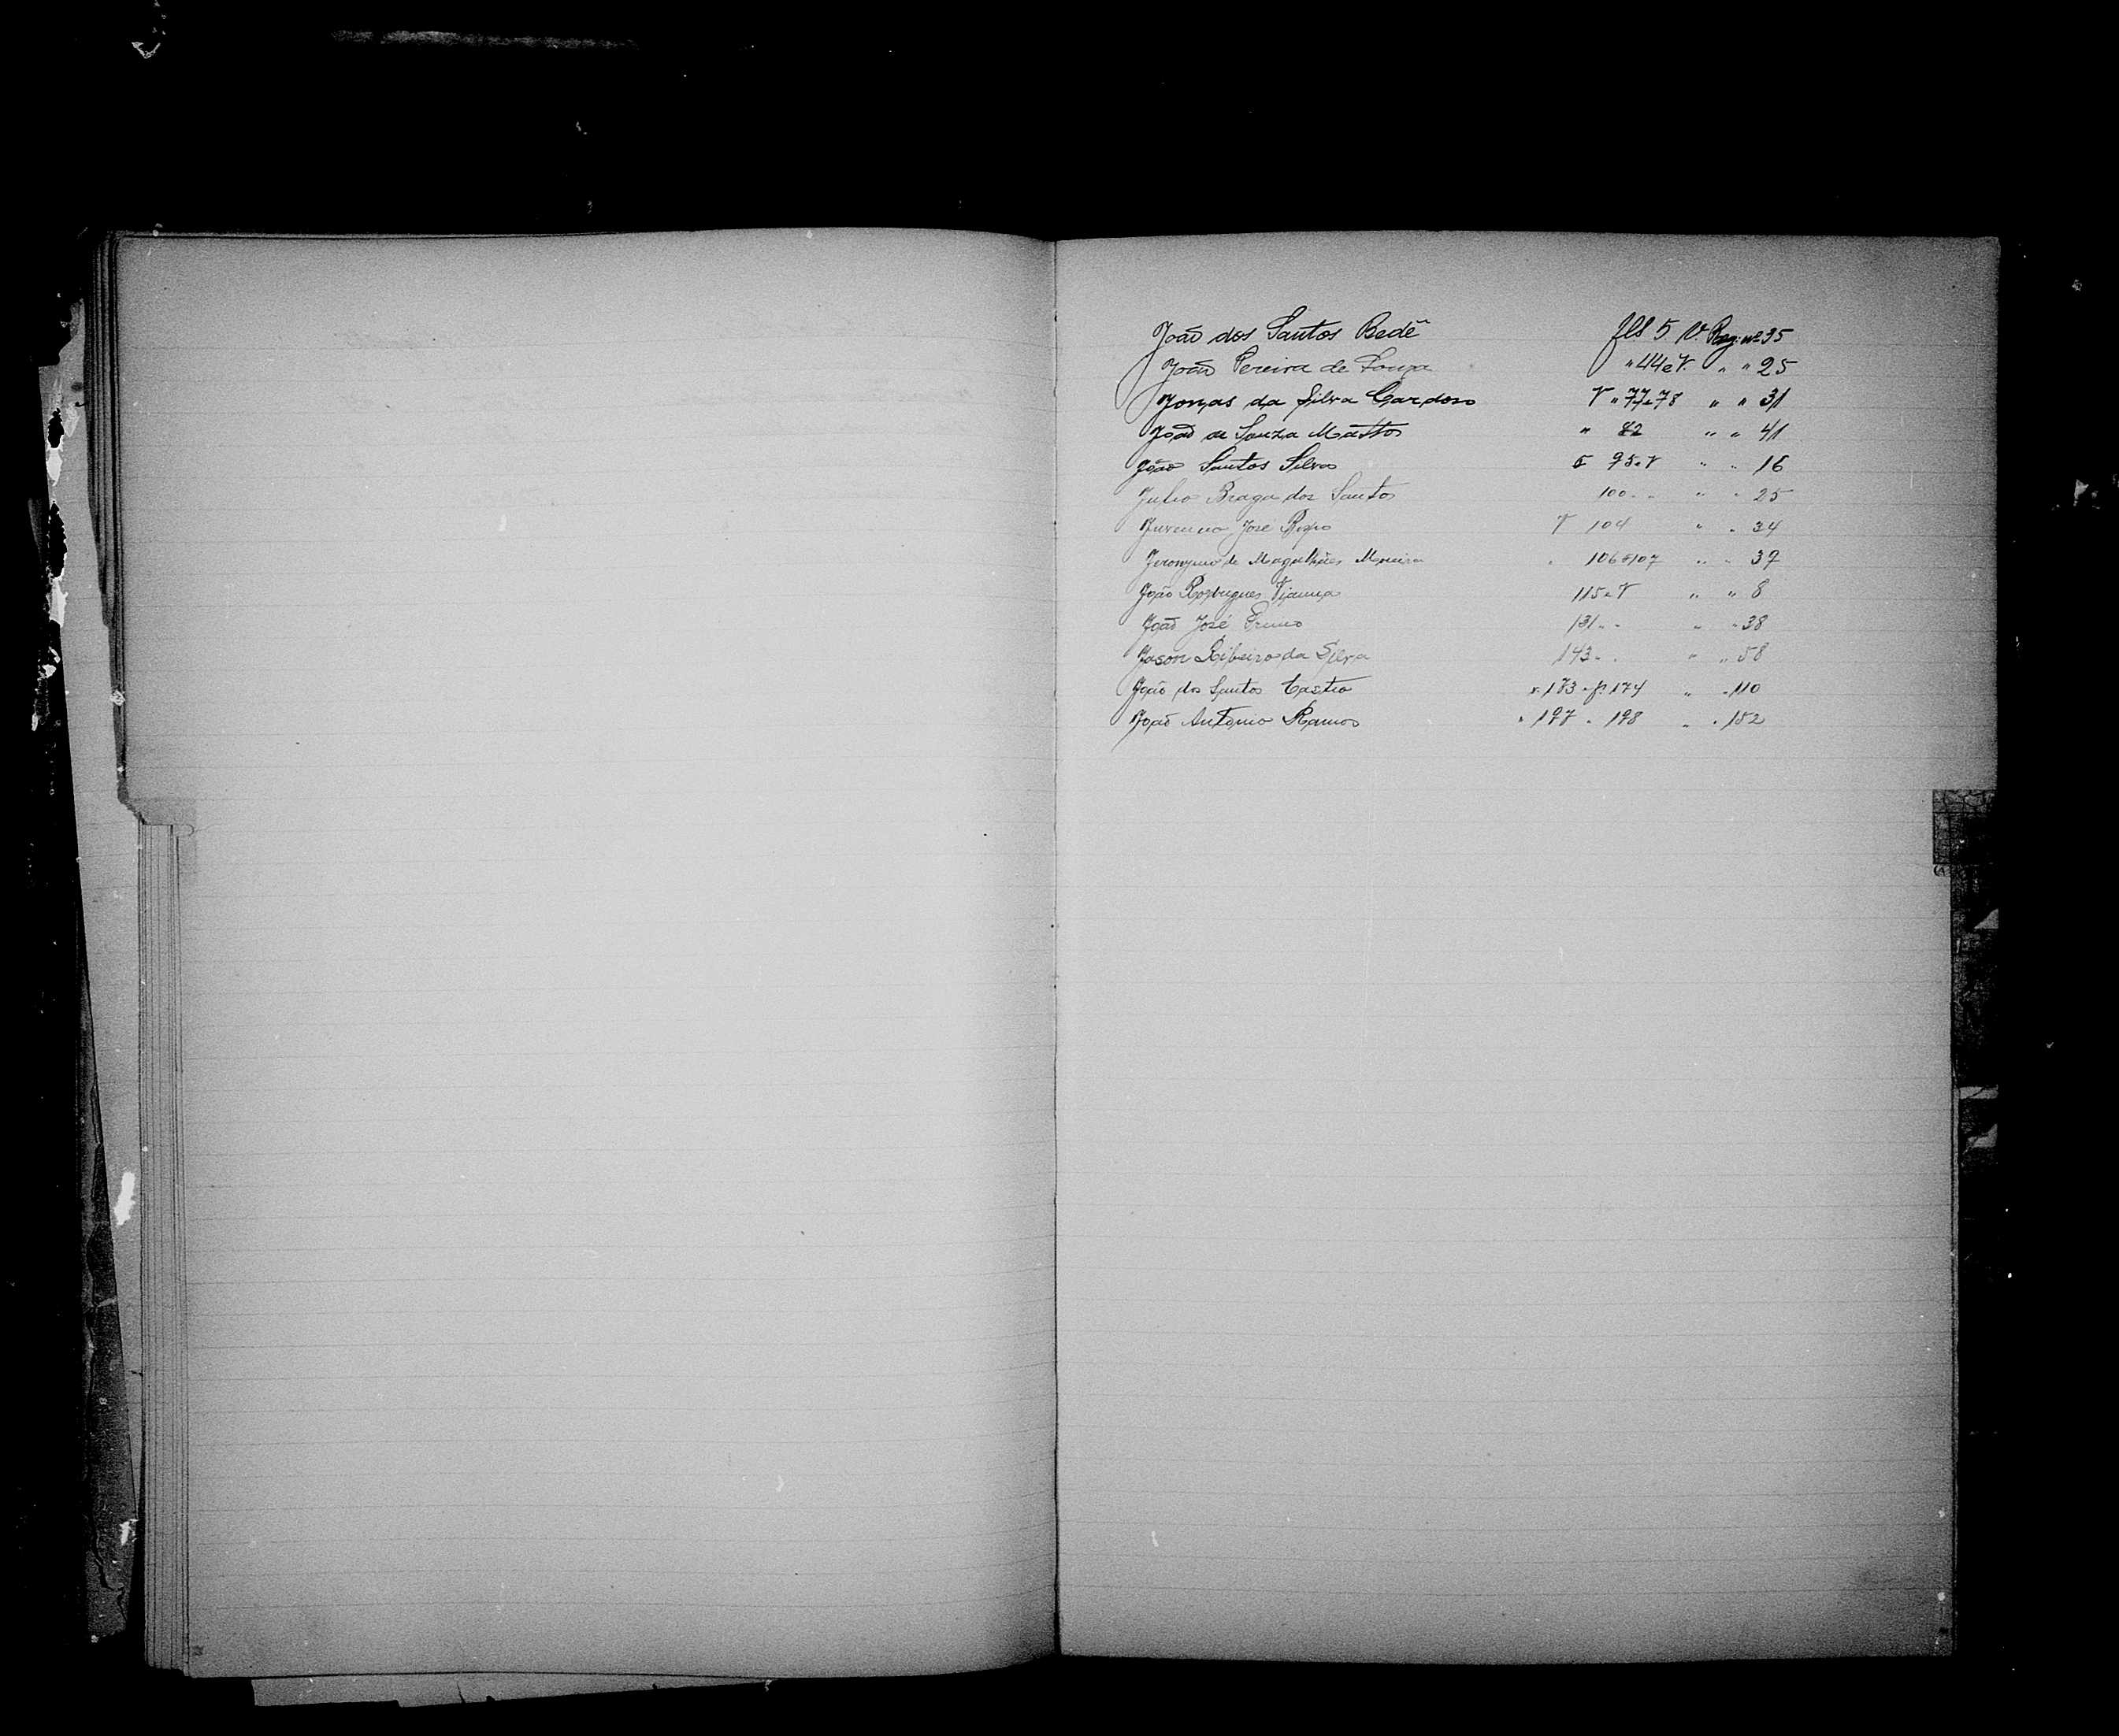 João dos Santos Bedê fls 5 V. Reg. nº 35
João Pereira de Souza " 44 e V. " " 25
Jonas da Silva Cardoso V " 77 e 78 " " 31
João de Souza Mattos " 82 " " 41
João Santos Silva 95 e V " " 16
Julio Braga dos Santos 100 " " " 25
José V 104 " " 34
Jeronymo de Magalhães " 106 e 107 " " 39
João Rodrigues Vianna 115 e V " " 8
João José 131 " " " 38
Jason Ribeiro da Silva 143 " " " 58
João dos Santos Castro 173 174 " " 110
João Antonio Ramos " 197 " 198 " " 152